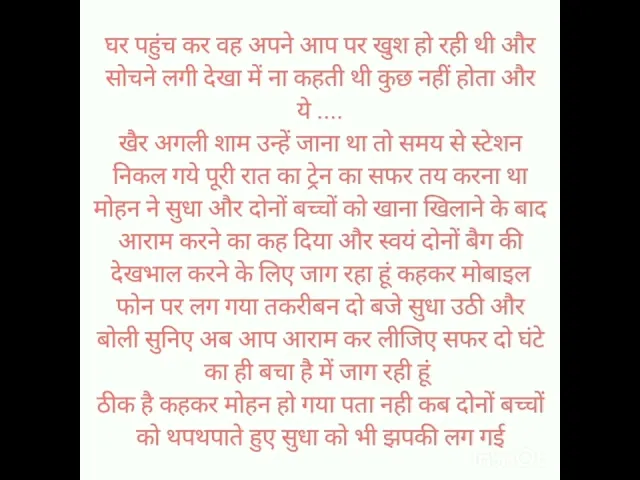 घर पहुंच कर वह अपने आप पर खुश हो रही थी और
सोचने लगी देखा में ना कहती थी कुछ नहीं होता और
ये ....
खैर अगली शाम उन्हें जाना था तो समय से स्टेशन
निकल गये पूरी रात का ट्रेन का सफर तय करना था
मोहन ने सुधा और दोनों बच्चों को खाना खिलाने के बाद
आराम करने का कह दिया और स्वयं दोनों बैग की
देखभाल करने के लिए जाग रहा हूं कहकर मोबाइल
फोन पर लग गया तकरीबन दो बजे सुधा उठी और
बोली सुनिए अब आप आराम कर लीजिए सफर दो घंटे
का ही बचा है में जाग रही हूं
ठीक है कहकर मोहन हो गया पता नही कब दोनों बच्चों
को थपथपाते हुए सुधा को भी झपकी लग गई